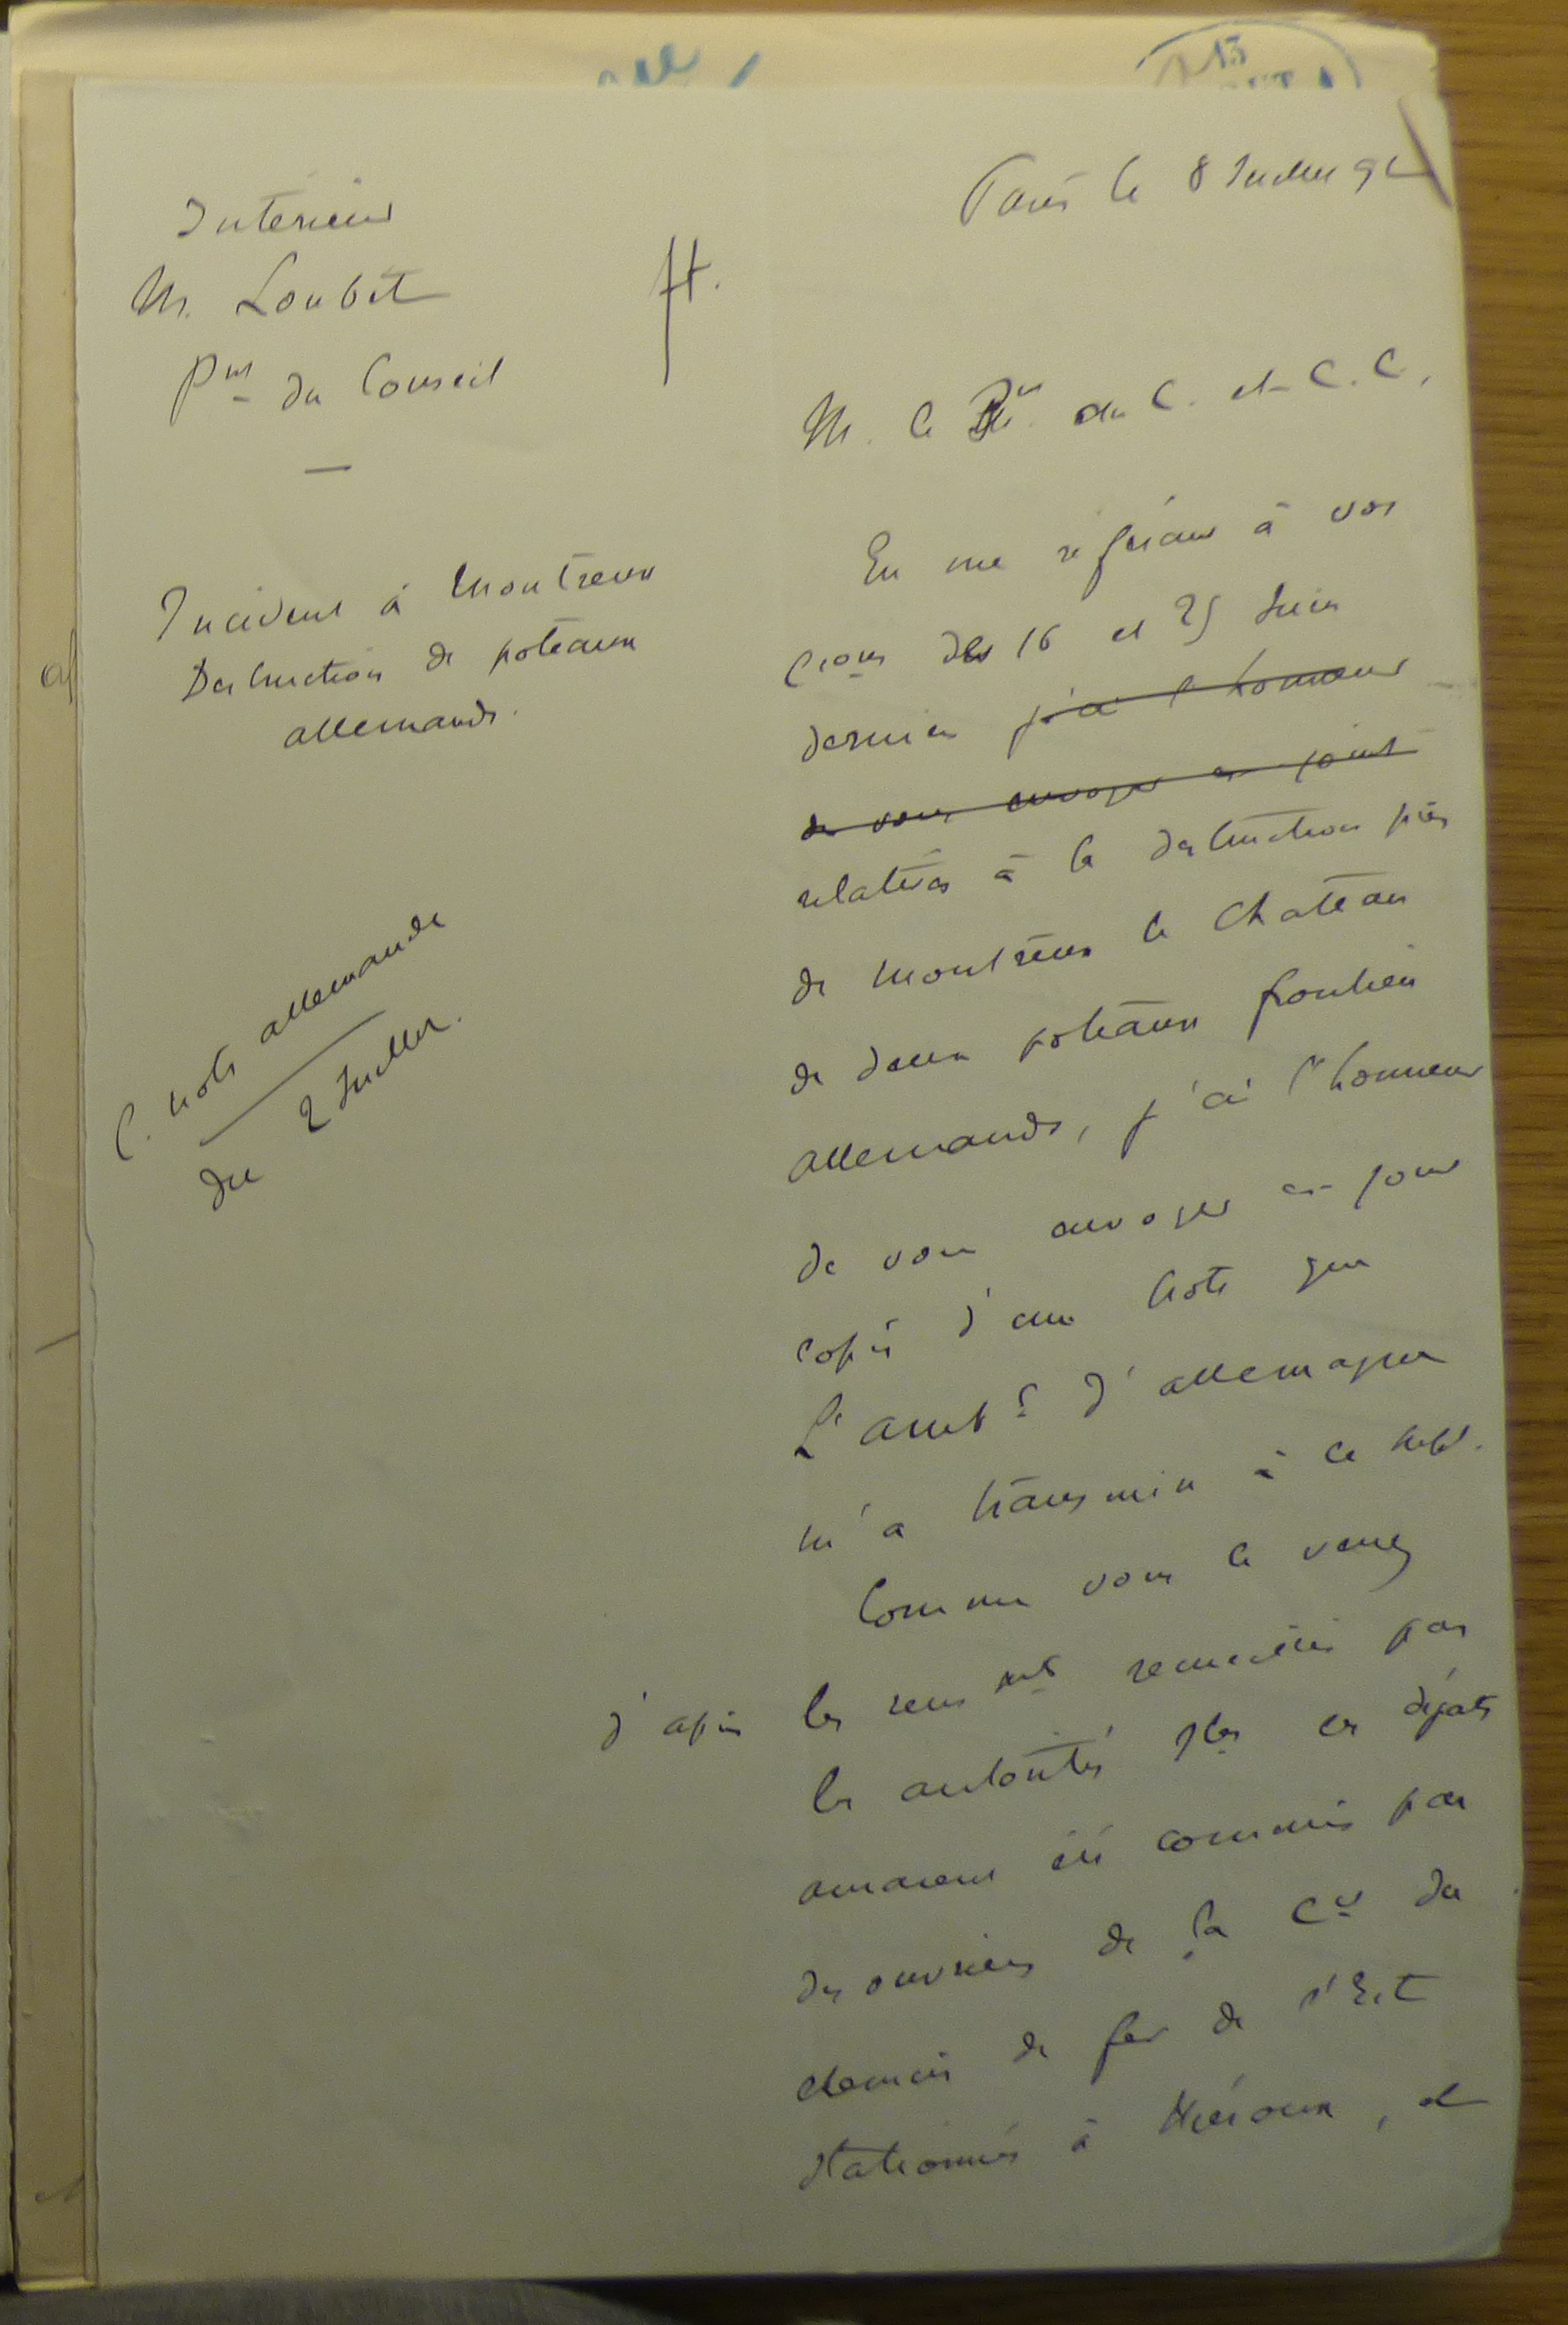 Paris le 8 Juillet 92
Intérieur
M. Loubet
Pnt du Conseil
M. le Pt. du C. et C. C.
Incident à Montreux
Destruction de poteaux
allemands.
C. note allemande
du 2 Juillet.
En me référant à vos
des 16 et 25 Juin
derniers j'ai l'honneur
de vous envoyer ci-joint
relatives à la destruction près
de Montreux le Chateau
de deux poteaux frontière
allemands, j'ai l'honneur
de vous envoyer ci-joint
copie d'une Note que
L'Ambr d'Allemagne
m'a transmise à ce sujet.
Comme vous le verrez
d'après les rensnts recueillis par
les autorités ces dégats
auraient été commis par
des ouvriers de la Cie du
chemin de fer de l'Est
stationnés à , et